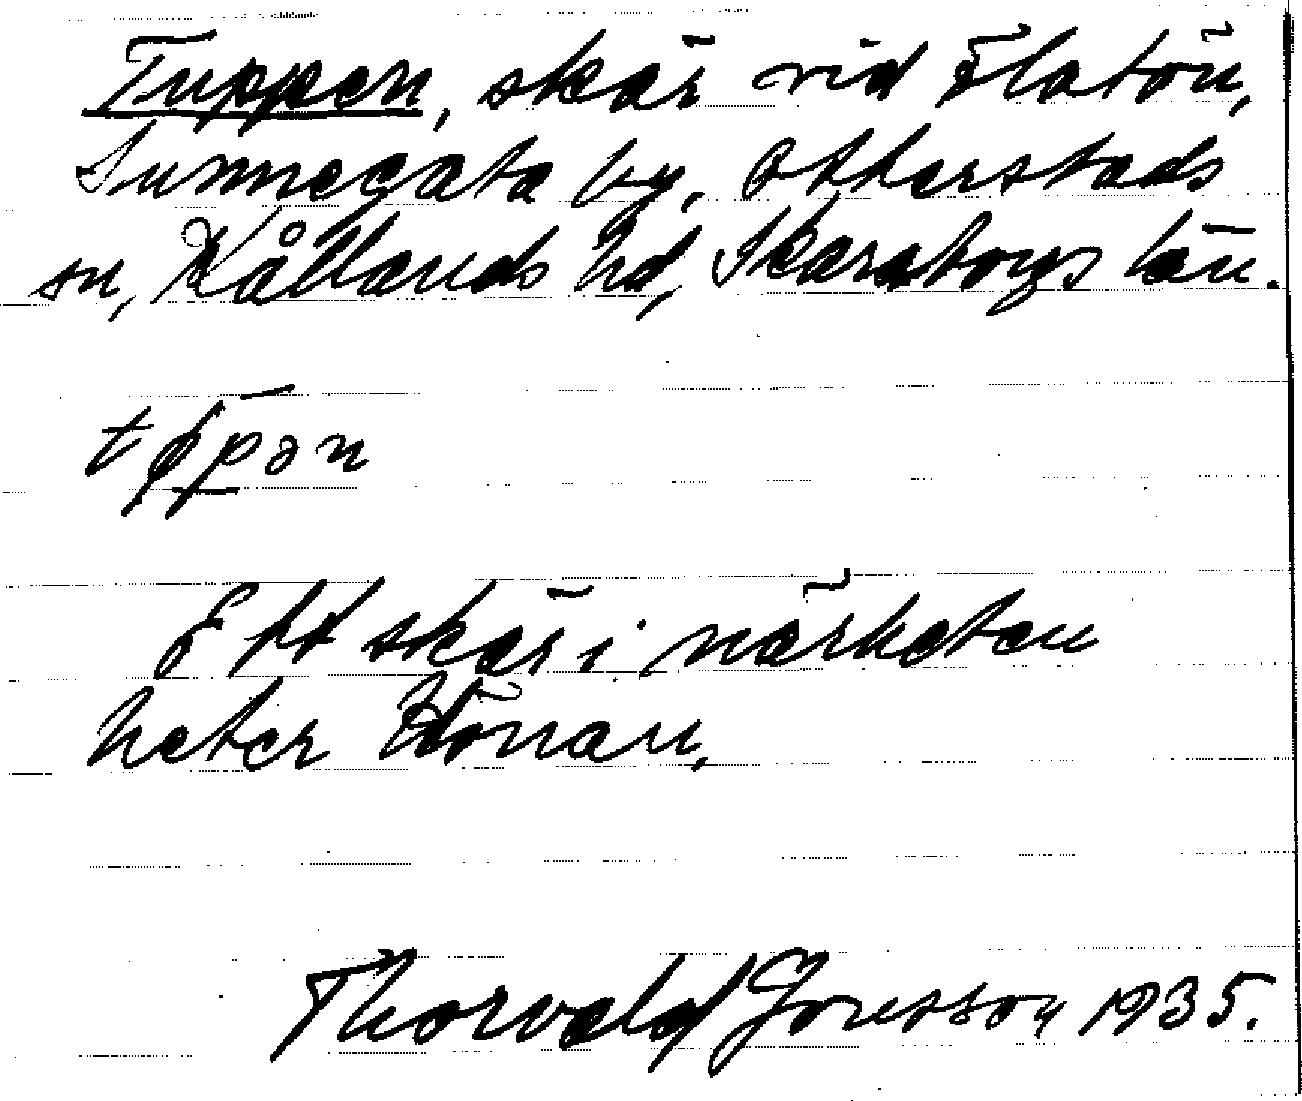 Tuppen, skär vid Flatön,
Sunnegata by, Otterstads
sn, Kållands hd, Skaraborgs län.
tφpən
Ett skär i närheten
heter Hönan,
Thorvald Jonsson 1935.